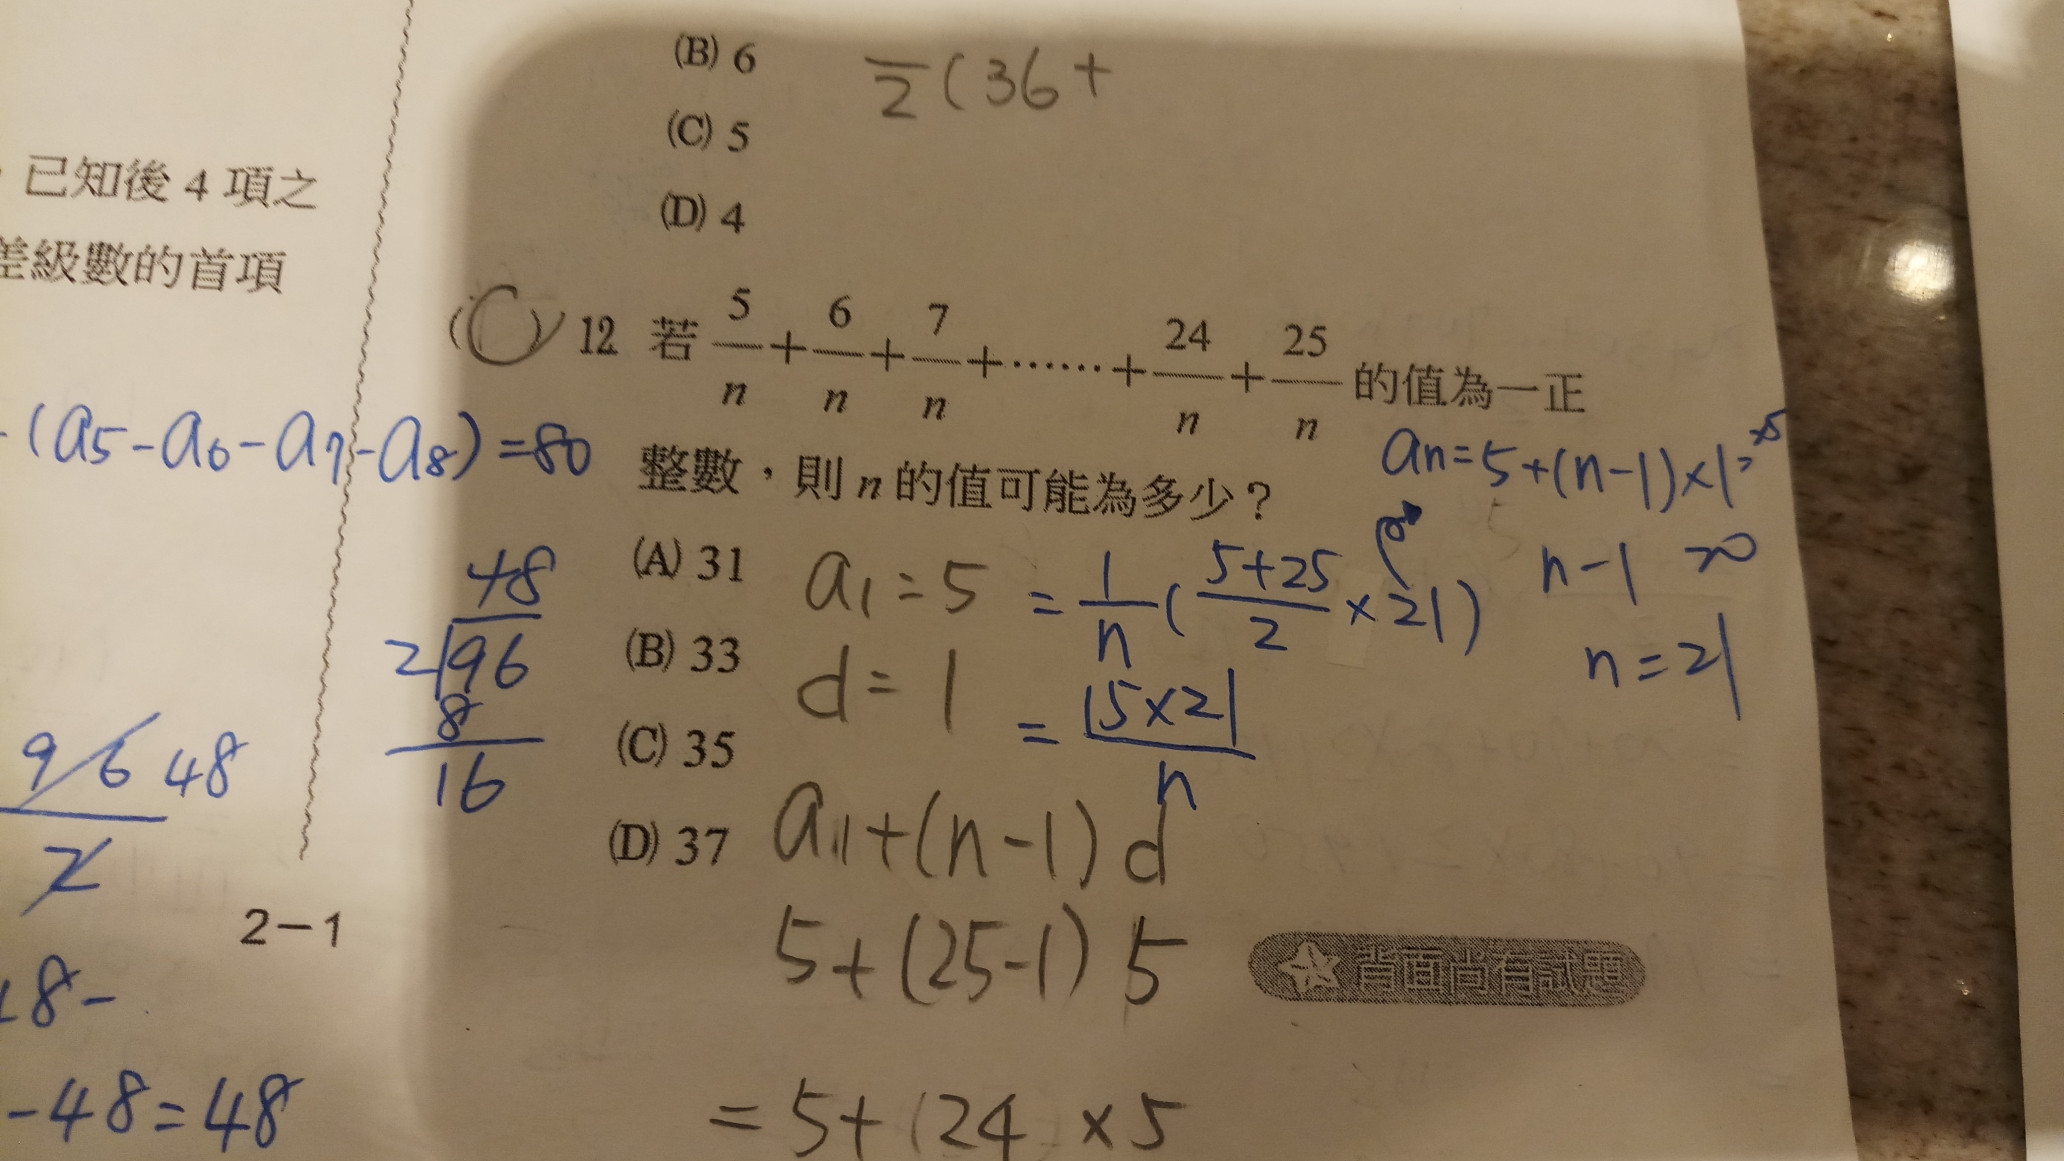 已知後 4 項之
差級數的首項
(a5-a6-a7-a8)=80
48
2)96
8
16
96 48
2
2－1
48-
-48=48
(B) 6
2(36+
(C) 5
(D) 4
(C) 12 若 5/n + 6/n + 7/n + …… + 24/n + 25/n 的值為一正
整數，則 n 的值可能為多少？
(A) 31
(B) 33
(C) 35
(D) 37
a1=5
d=1
a1+(n-1)d
5+(25-1)5
=5+(24×5
=1/n(5+25/2×21)
=15×21/n
an=5+(n-1)×1
n-1
n=21
背面尚有試題